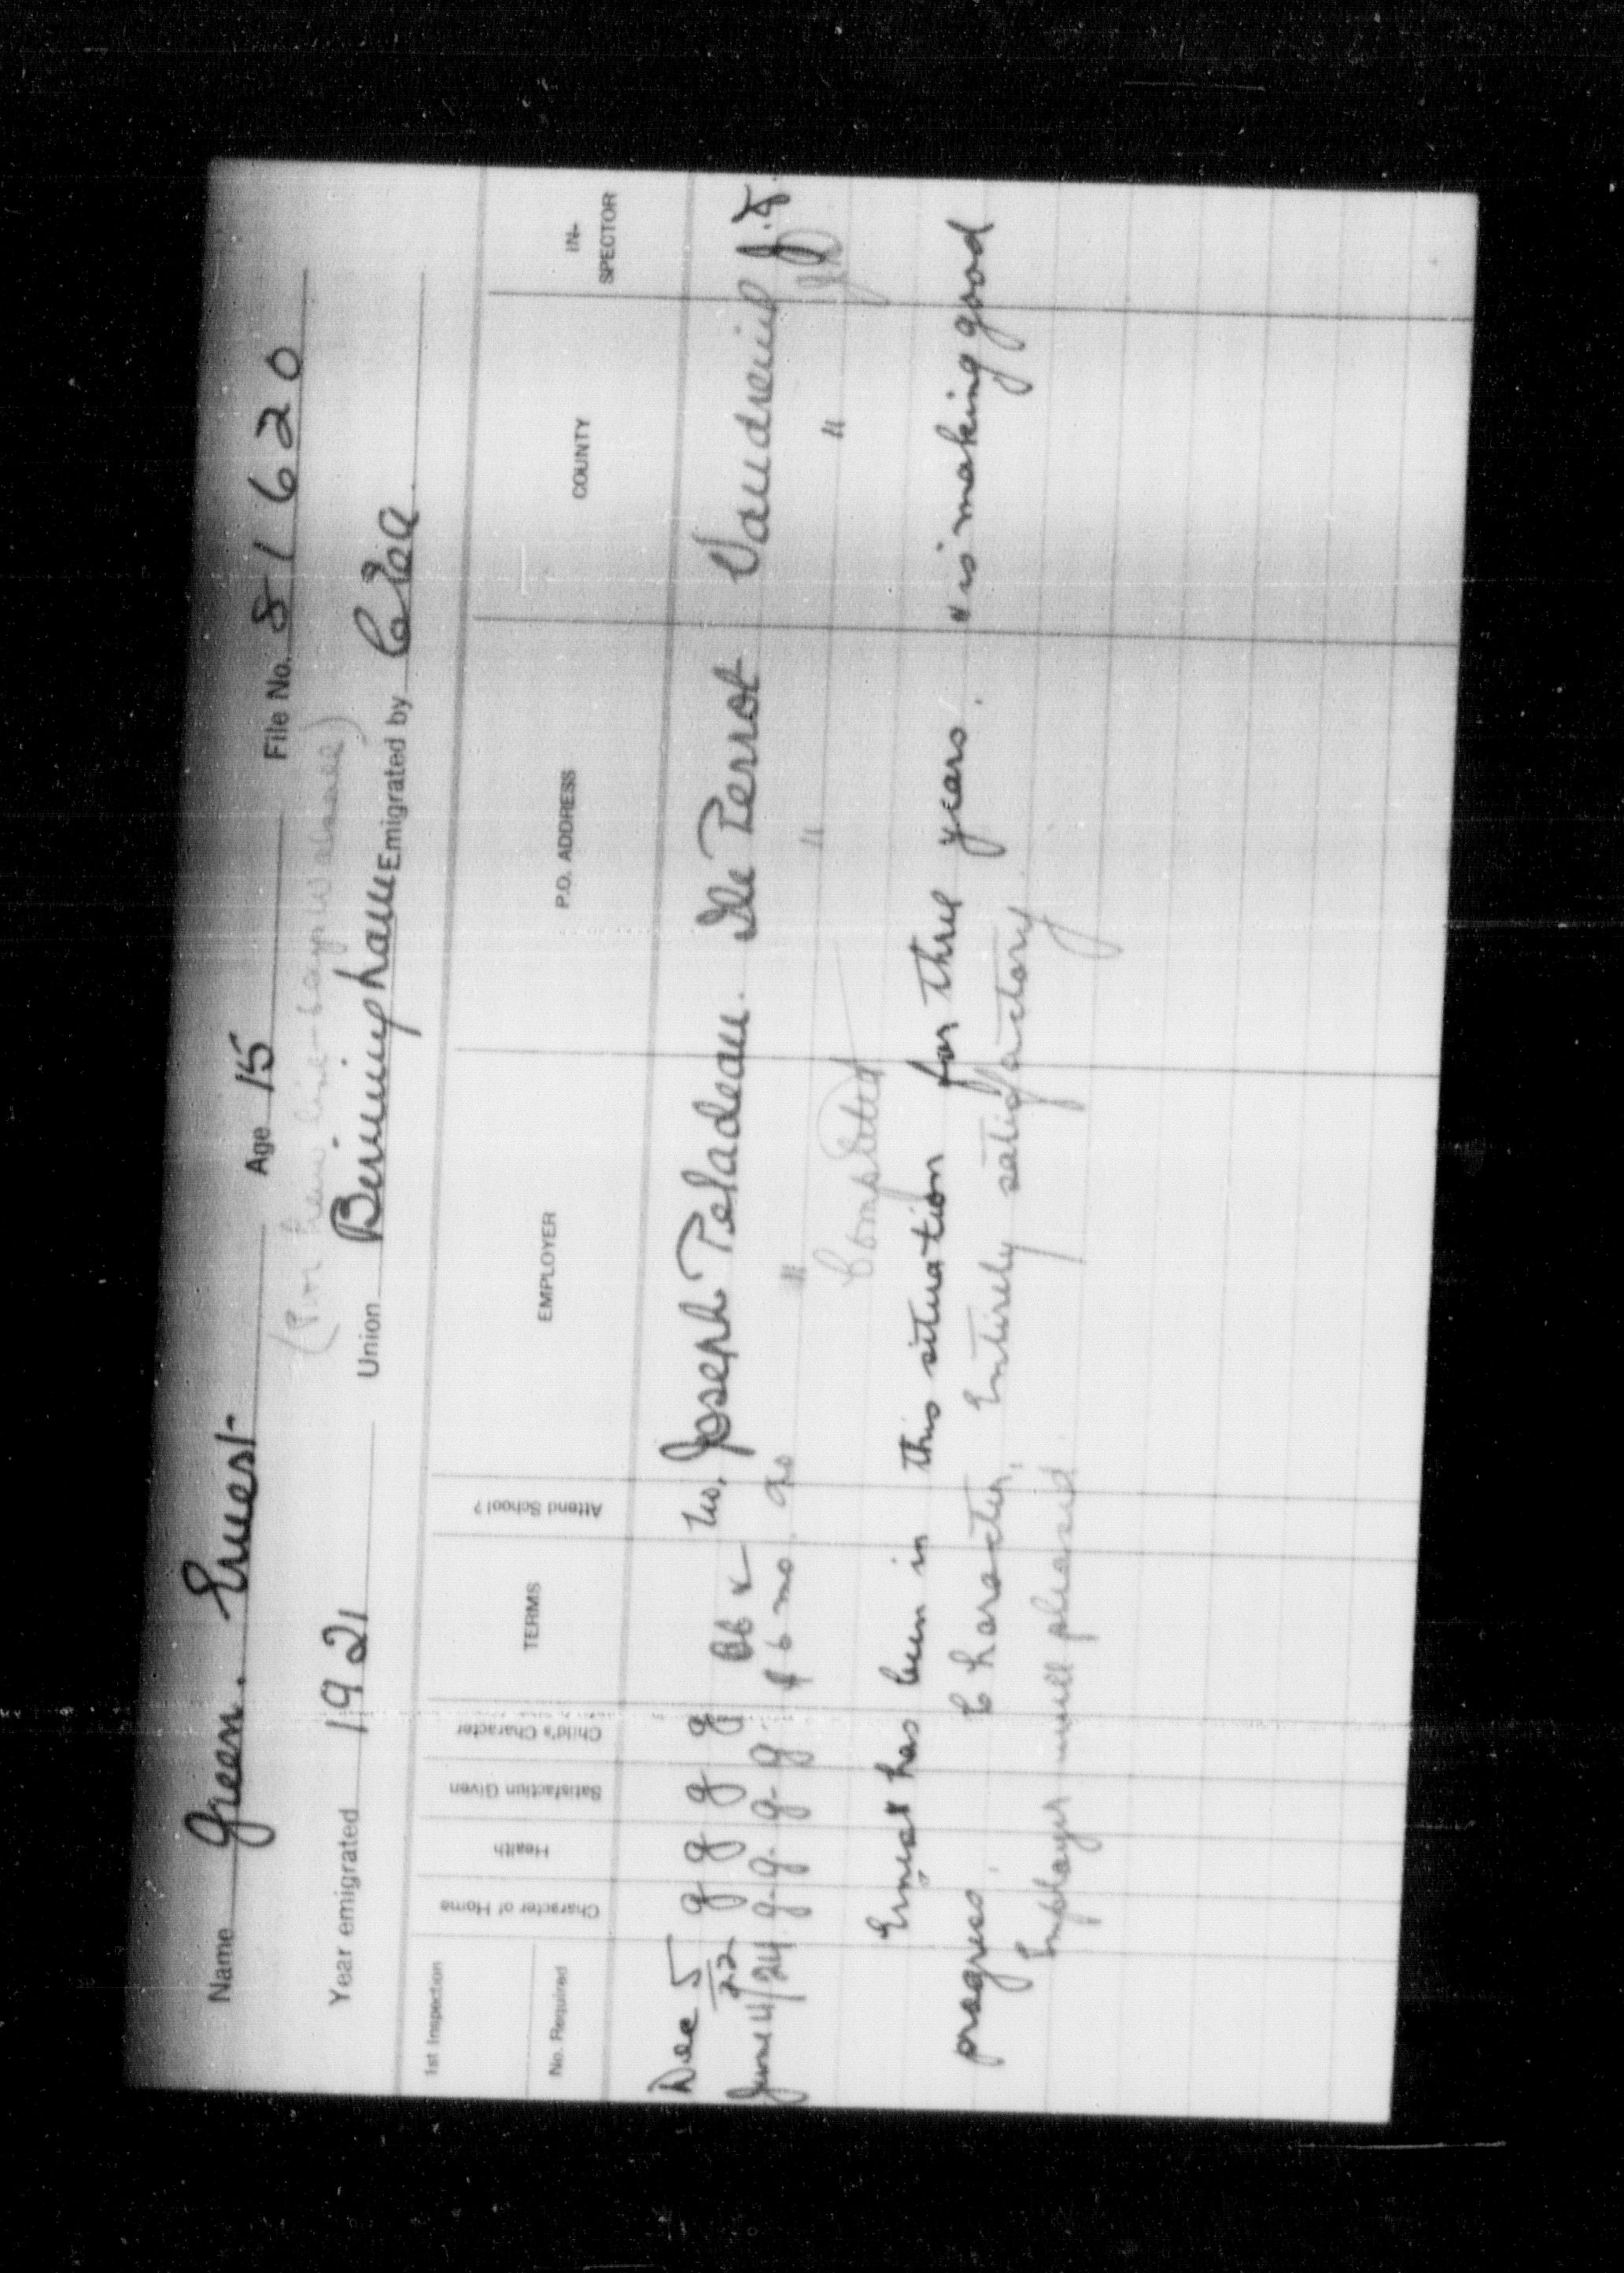 Name Green. Ernest Age 15 File No. 81620
(Poor Law Line - says Walsall)
Year emigrated 1921 Union Birmingham Emigrated by C.E.A.
1st Inspection
No. Required
Character of Home
Health
Satisfaction Given
Child's Character
TERMS
Attend School?
EMPLOYER
P.O. ADDRESS
COUNTY
IN-
SPECTOR
Dec 5/22 g g g g No. Joseph Peladeau. Ile Perrot Vaudreuil
June 4/24 g. g. g. g. mo. " " "
Completed
Ernest has been in this situation for three years. " is making good
progress. Character, Entirely satisfactory.
Employer well pleased.